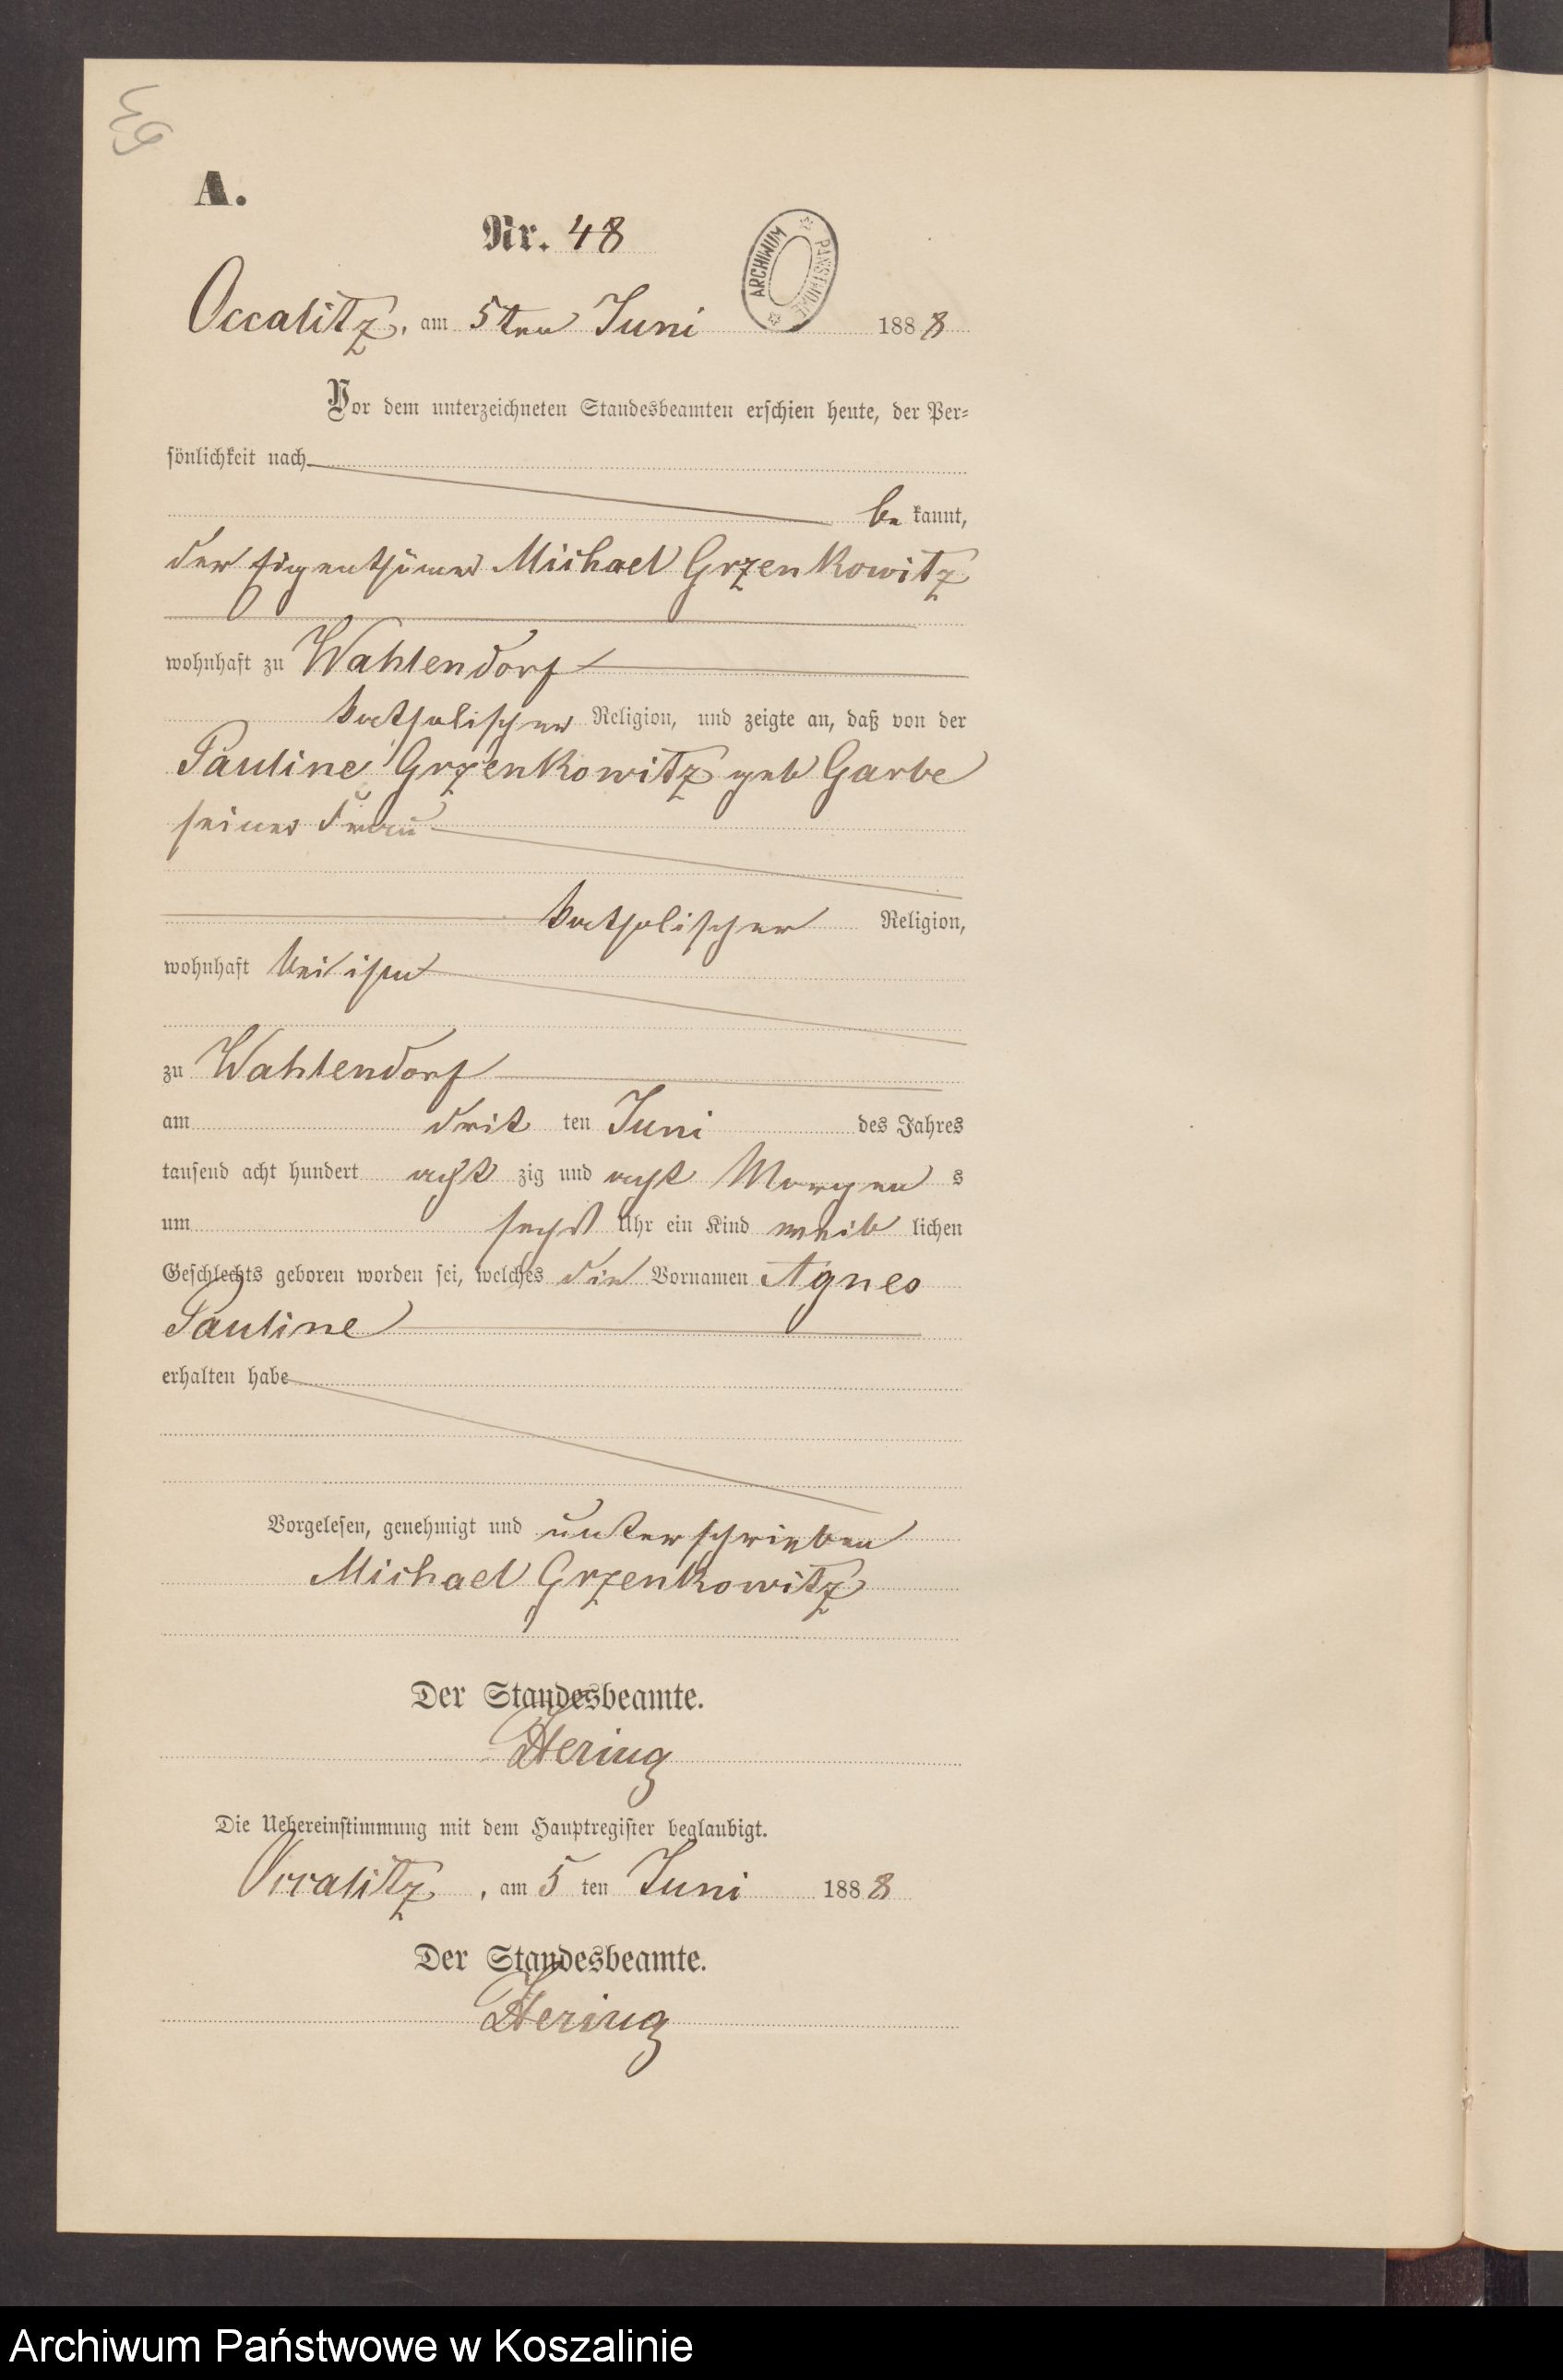 49
A.
Nr. 48
ARCHIWUM PAŃSTWOWE
Occalitz, am 5ten Juni 1888
Vor dem unterzeichneten Standesbeamten erschien heute, der Per-
sönlichkeit nach
be kannt,
der Eigenthümer Michael Grzenkowitz
wohnhaft zu Wahlendorf
katholischer Religion, und zeigte an, daß von der
Pauline Grzenkowitz geb Garbe
seiner Frau
katholischer Religion,
wohnhaft bei ihm
zu Wahlendorf
am drit ten Juni des Jahres
tausend acht hundert acht zig und acht Morgen s
um sechs Uhr ein Kind weib lichen
Geschlechts geboren worden sei, welches die Vornamen Agnes
Pauline
erhalten habe
Vorgelesen, genehmigt und unterschrieben
Michael Grzenkowitz
Der Standesbeamte.
Hering
Die Uebereinstimmung mit dem Hauptregister beglaubigt.
Occalitz, am 5 ten Juni 1888
Der Standesbeamte.
Hering
Archiwum Państwowe w Koszalinie